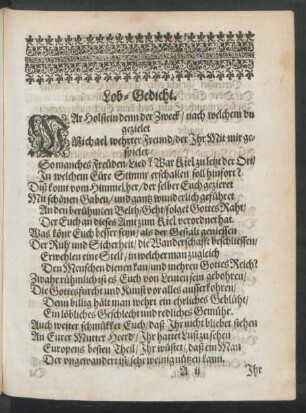 Lob-Gedicht.
WAr Holstein denn der Zweck / nach welchem du
gezielet
Michael wehrter Freund / der Ihr Mit mir ge-
spielet
So manches Freuden Lied? War Kiel zu letzt der Ort /
In welchem Eure Stimm erschallen soll hinfort?
Diß komt vom Himmel her / der selber Euch gezieret
Mit schönen Gaben / und gantz wunderlich geführet
An den berühmten Belth / Geht / folget Gottes Raht /
Der Euch an dieses Amt zum Kiel verordnet hat.
Was könt Euch besser seyn / als der Gestalt geniessen
Der Ruh und Sicherheit / die Wanderschafft beschliessen /
Erwehlen eine Stell / in welcher man zugleich
Den Menschen dienen kan / und mehren Gottes Reich?
Zwahr rühmlich ist es Euch von Leuten seyn gebohren /
Die Gottesfurcht und Kunst vor alles außerkohren /
Denn billig hält man wehrt ein ehrliches Geblüht /
Ein löbliches Geschlecht und redliches Gemüht.
Auch weiter schmükket Euch / daß Ihr nicht blieber stehen
An Eurer Mutter Heerd / Ihr hattet Lust zu sehen
Europens besten Theil / Ihr wüstet / daß ein Man
Der ungewandert ist / sehr wenig nützen kann.
A ij Ihr